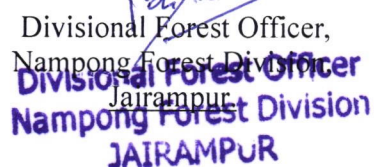 Divisional Forest Officer,
Nampong Forest Division,
Jairampur.
Divisional Forest Officer
Nampong Forest Division
JAIRAMPUR